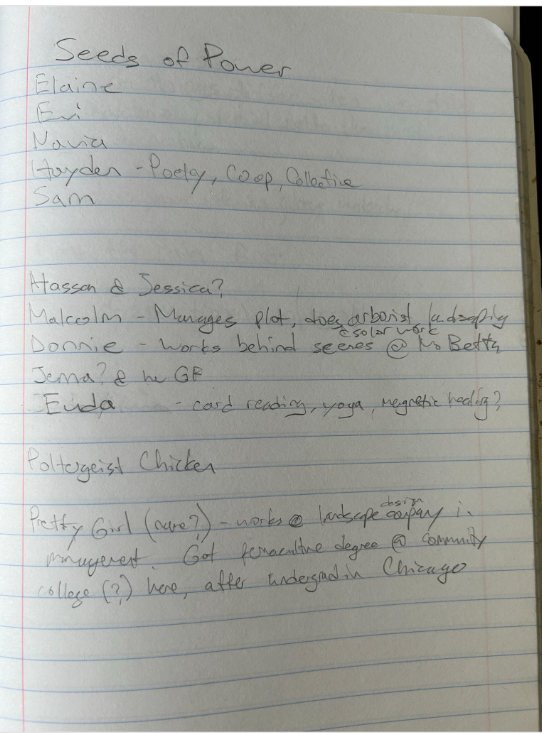 Seeds of Power
Elaine
Evi
Navia
Hayden - Poetry, Coop, Collective
Sam
Hassan & Jessica?
Malcolm - Manages plot, does arborist, ladscaping
& solar work
Donnie - works behind scenes @ Mo Betta
Jema? & he GF
Euda - card reading, yoga, magnetic healing?
Poltergeist Chicken
Pretty Girl (name?) - works @ landscape design company in
management. Got permaculture degree @ community
college (?) here, after undergrad in Chicago